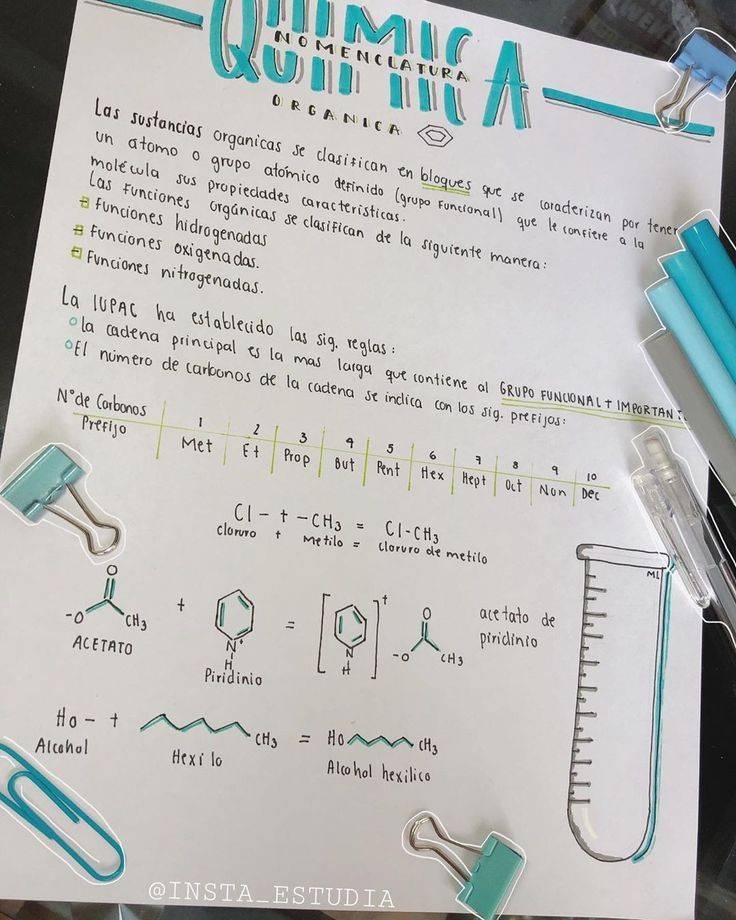 QUIMICA
NOMENCLATURA
ORGANICA
Las sustancias organicas se clasifican en bloques que se caracterizan por tener
un atomo o grupo atómico definido (grupo funcional) que le confiere a la
molécula sus propiedades características.
Las funciones orgánicas se clasifican de la siguiente manera:
Funciones hidrogenadas
Funciones oxigenadas.
Funciones nitrogenadas.
La IUPAC ha establecido las sig. reglas:
la cadena principal es la mas larga que contiene al GRUPO FUNCIONAL + IMPORTAN
El número de carbonos de la cadena se indica con los sig. prefijos:
N° de Carbonos 1 2 3 4 5 6 7 8 9 10
Prefijo Met Et Prop But Pent Hex Hept Oct Non Dec
Cl- + -CH3 = Cl-CH3
cloruro + Metilo = cloruro de metilo
O
-O CH3 + N+ H = [ N H ]+ O -O CH3 acetato de
piridinio
ACETATO
Piridinio
HO- + CH3 = HO CH3
Alcohol Hexilo Alcohol hexilico
ML
@INSTA_ESTUDIA